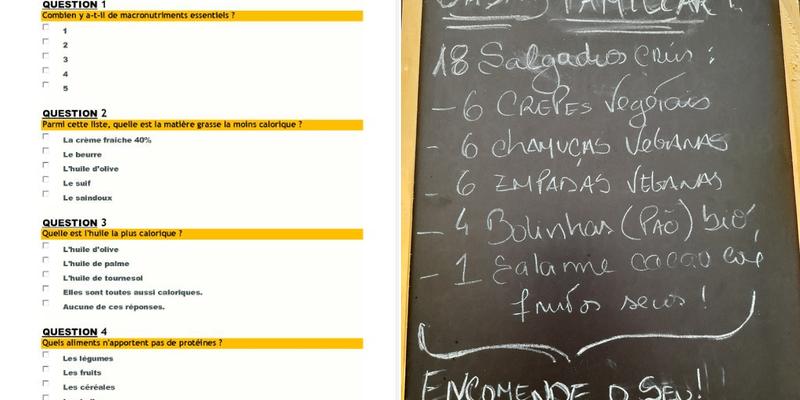 QUESTION 1
Combien y a-t-il de macronutriments essentiels ?
1
2
3
4
5
QUESTION 2
Parmi cette liste, quelle est la matière grasse la moins calorique ?
La crème fraiche 40%
Le beurre
L'huile d'olive
Le suif
Le saindoux
QUESTION 3
Quelle est l'huile la plus calorique ?
L'huile d'olive
L'huile de palme
L'huile de tournesol
Elles sont toutes aussi caloriques.
Aucune de ces réponses.
QUESTION 4
Quels aliments n'apportent pas de protéines ?
Les légumes
Les fruits
Les céréales
FAMILIAR !
18 Salgados crús :
- 6 CREPES Vegetais
- 6 CHAMUÇAS VEGANAS
- 6 EMPADAS VEGANAS
- 4 Bolinhas (PÃO) bió,
- 1 Salame cacau
frutos secos !
ENCOMENDE O SEU!!